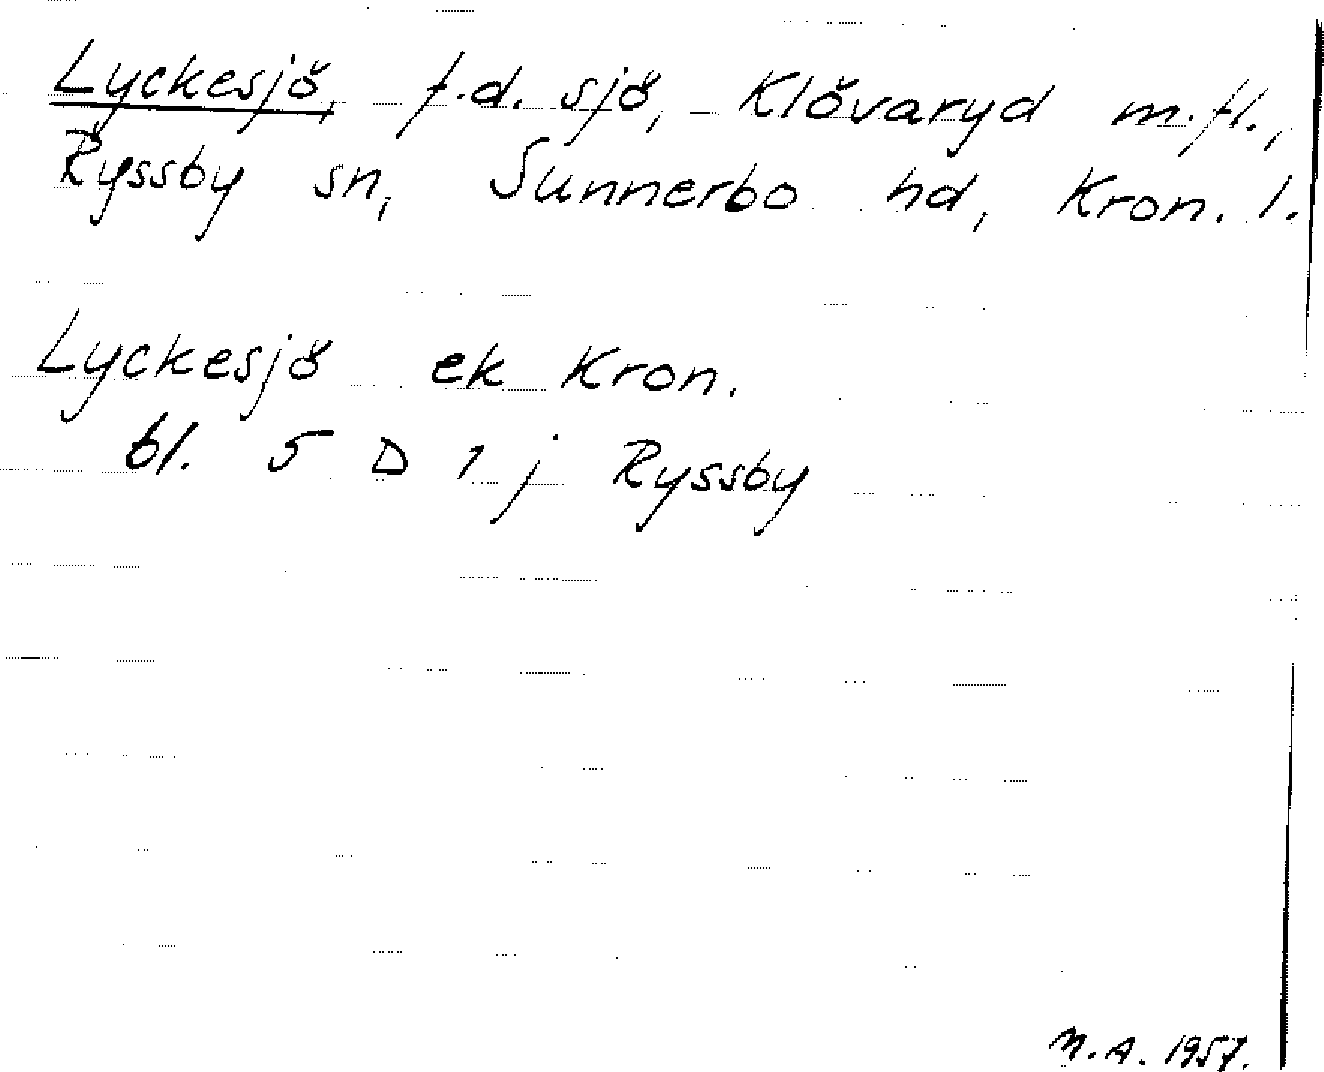 Lyckesjö, f.d. sjö, Klövaryd m.fl.,
Ryssby sn, Sunnerbo hd, Kron. l.
Lyckesjö ek Kron.
bl. 5 D 1 j Ryssby
N.A. 1957.